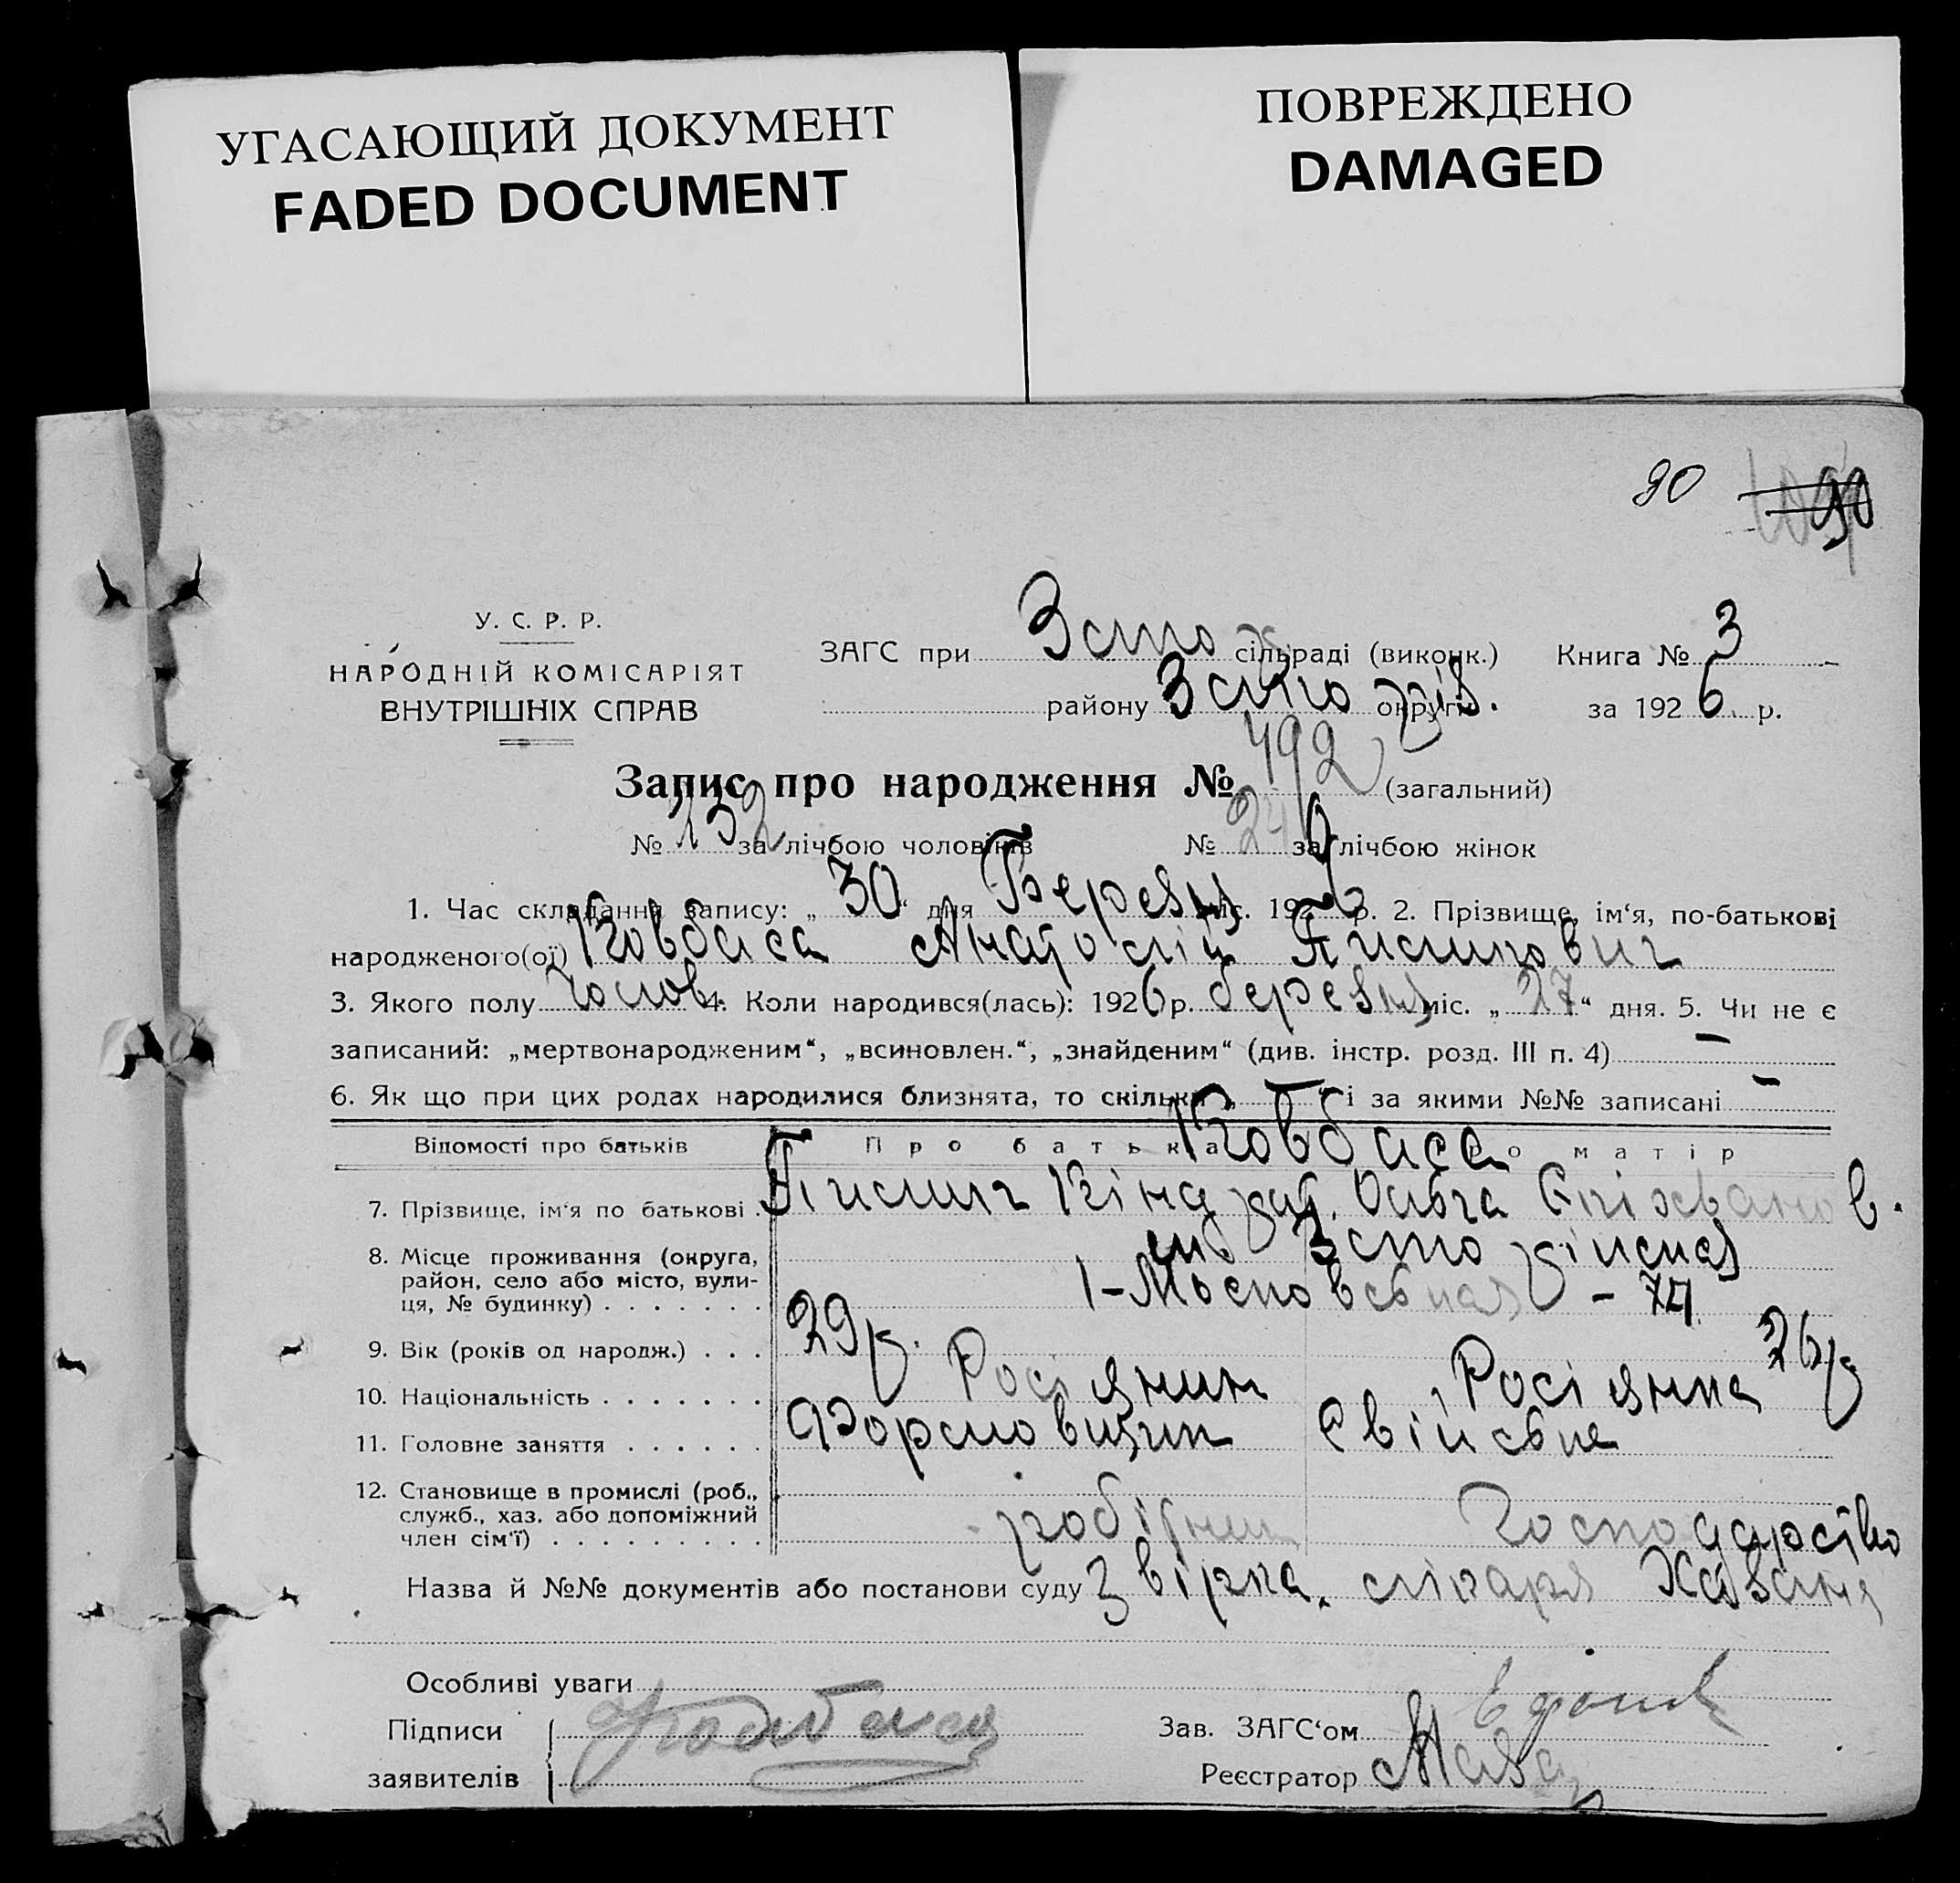 УГАСАЮЩИЙ ДОКУМЕНТ
FADED DOCUMENT
ПОВРЕЖДЕНО
DAMAGED
90 90
У. С. Р. Р.
НАРОДНІЙ КОМІСАРІЯТ
ВНУТРІШНІХ СПРАВ
ЗАГС при сільраді (виконк.) Книга № 3
району округи за 1926 р.
Запис про народження № 492 (загальний)
№ 252 за лічбою чоловіків № 240 за лічбою жінок
1. Час складання запису: „30“ дня Березня міс. 1926 р. 2. Прізвище, ім‘я, по-батькові
народженого(ої) Ковбаса Анатолій Пилипович
3. Якого полу чолов. 4. Коли народився(лась): 1926 р. березня міс. „27“ дня. 5. Чи не є
записаний: „мертвонародженим“, „всиновлен.“, „знайденим“ (див. інстр. розд. III п. 4) —
6. Як що при цих родах народилися близнята, то скільки „—“ і за якими №№ записані —
Відомості про батьків Про батька Про матір
Ковбаса
7. Прізвище, ім‘я по батькові Пилип Кіндрат. Ольга
8. Місце проживання (округа,
район, село або місто, вули-
ця, № будинку) 1-
9. Вік (років од народж.) 29 р. 26 р
10. Національність Росіянин Росіянка
11. Головне заняття Формовщик Свійське
12. Становище в промислі (роб.,
служб., хаз. або допоміжний
член сім‘ї) робітник господарство
Назва й №№ документів або постанови суду лікаря
Особливі уваги
Підписи Ковбаса Зав. ЗАГС‘ом
заявителів Реєстратор